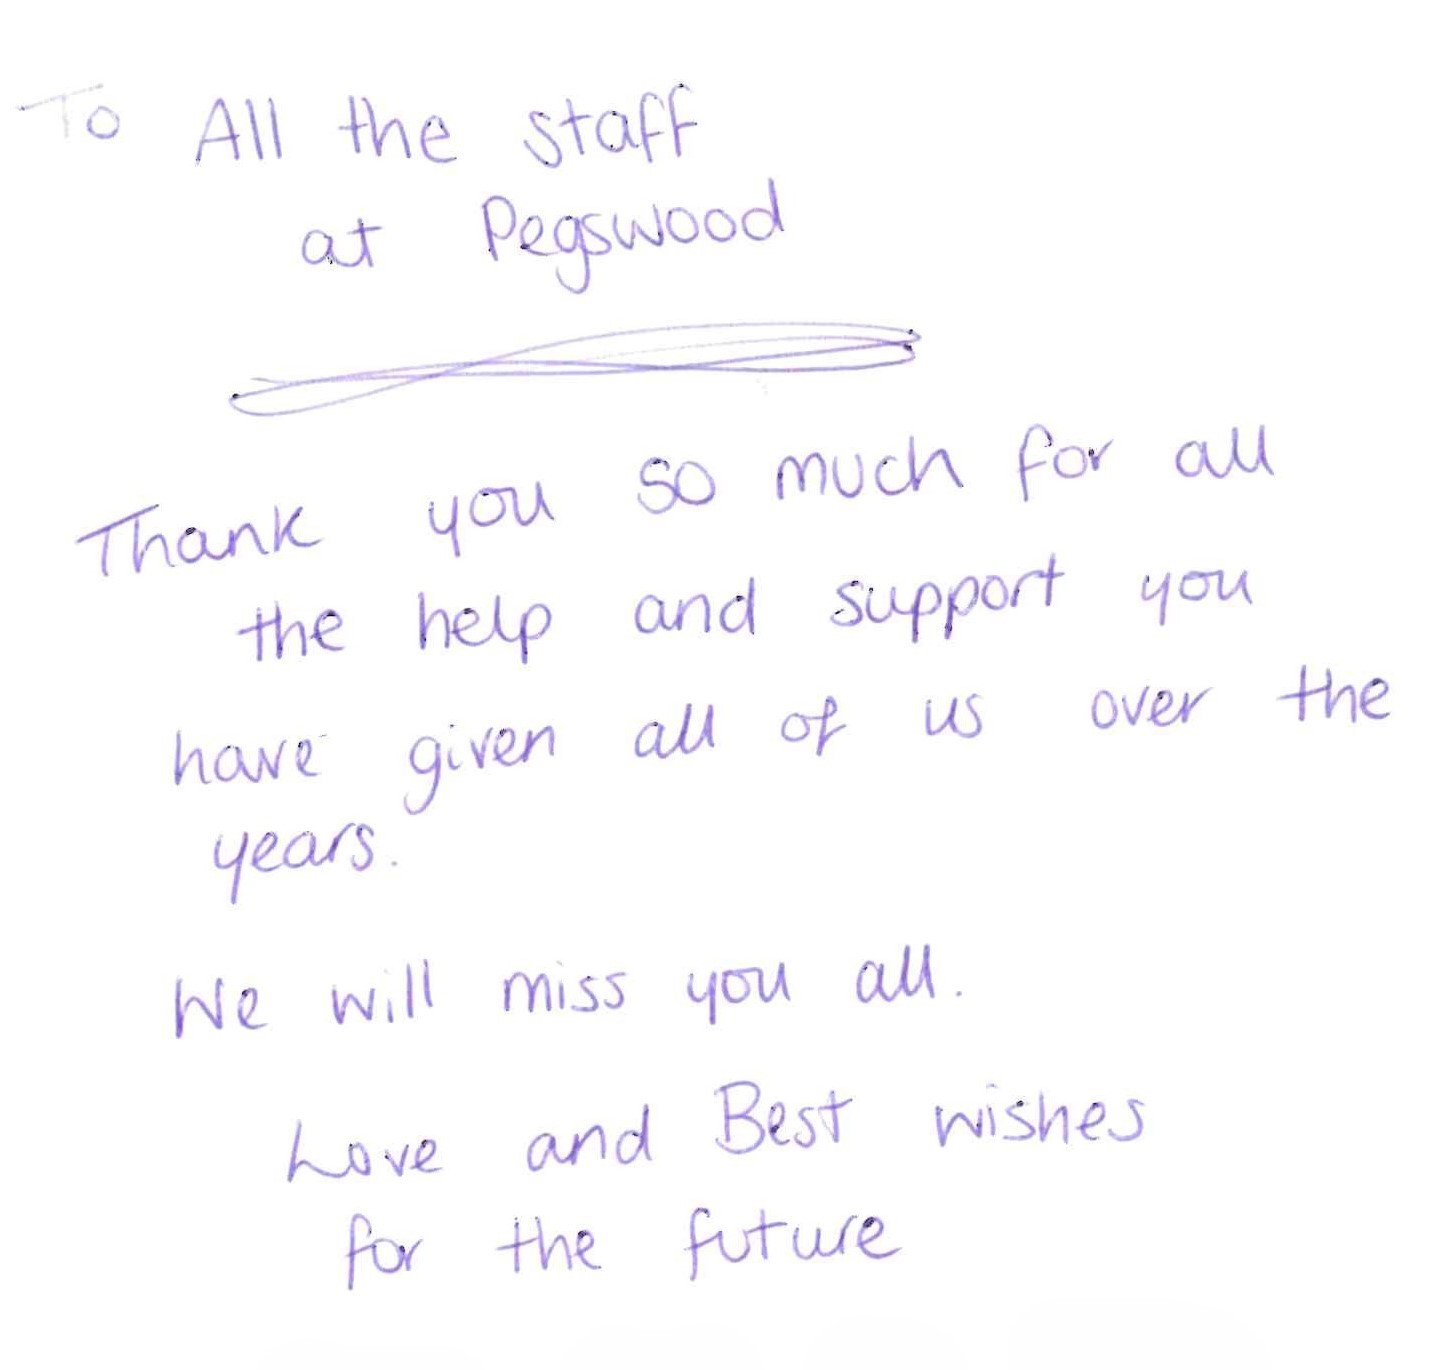 To All the staff
at Pegswood
Thank you so much for all
the help and support you
have given all of us over the
years.
We will miss you all.
Love and Best wishes
for the future